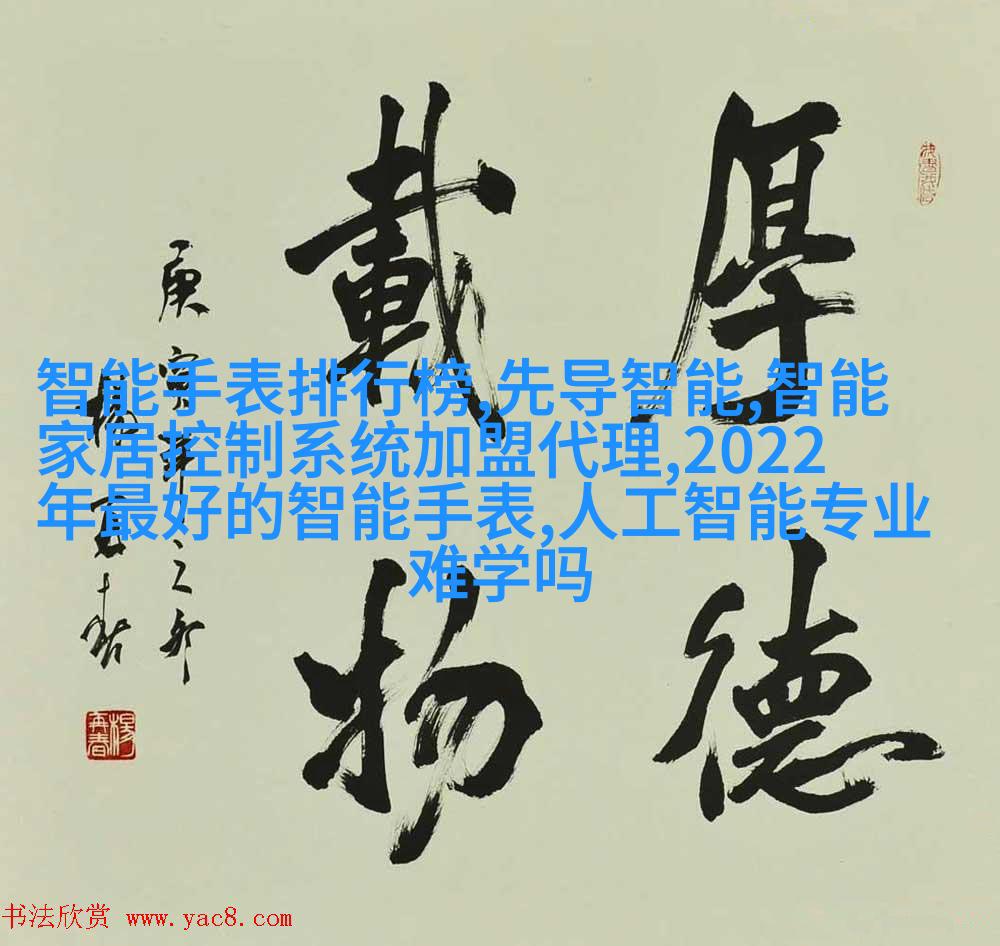 厚德
載物
庚寅年之卯
楊再春
楊再春
智能手表排行榜,先导智能,智能
家居控制系统加盟代理,2022
年最好的智能手表,人工智能专业
难学吗
书法欣赏 www.yac8.com